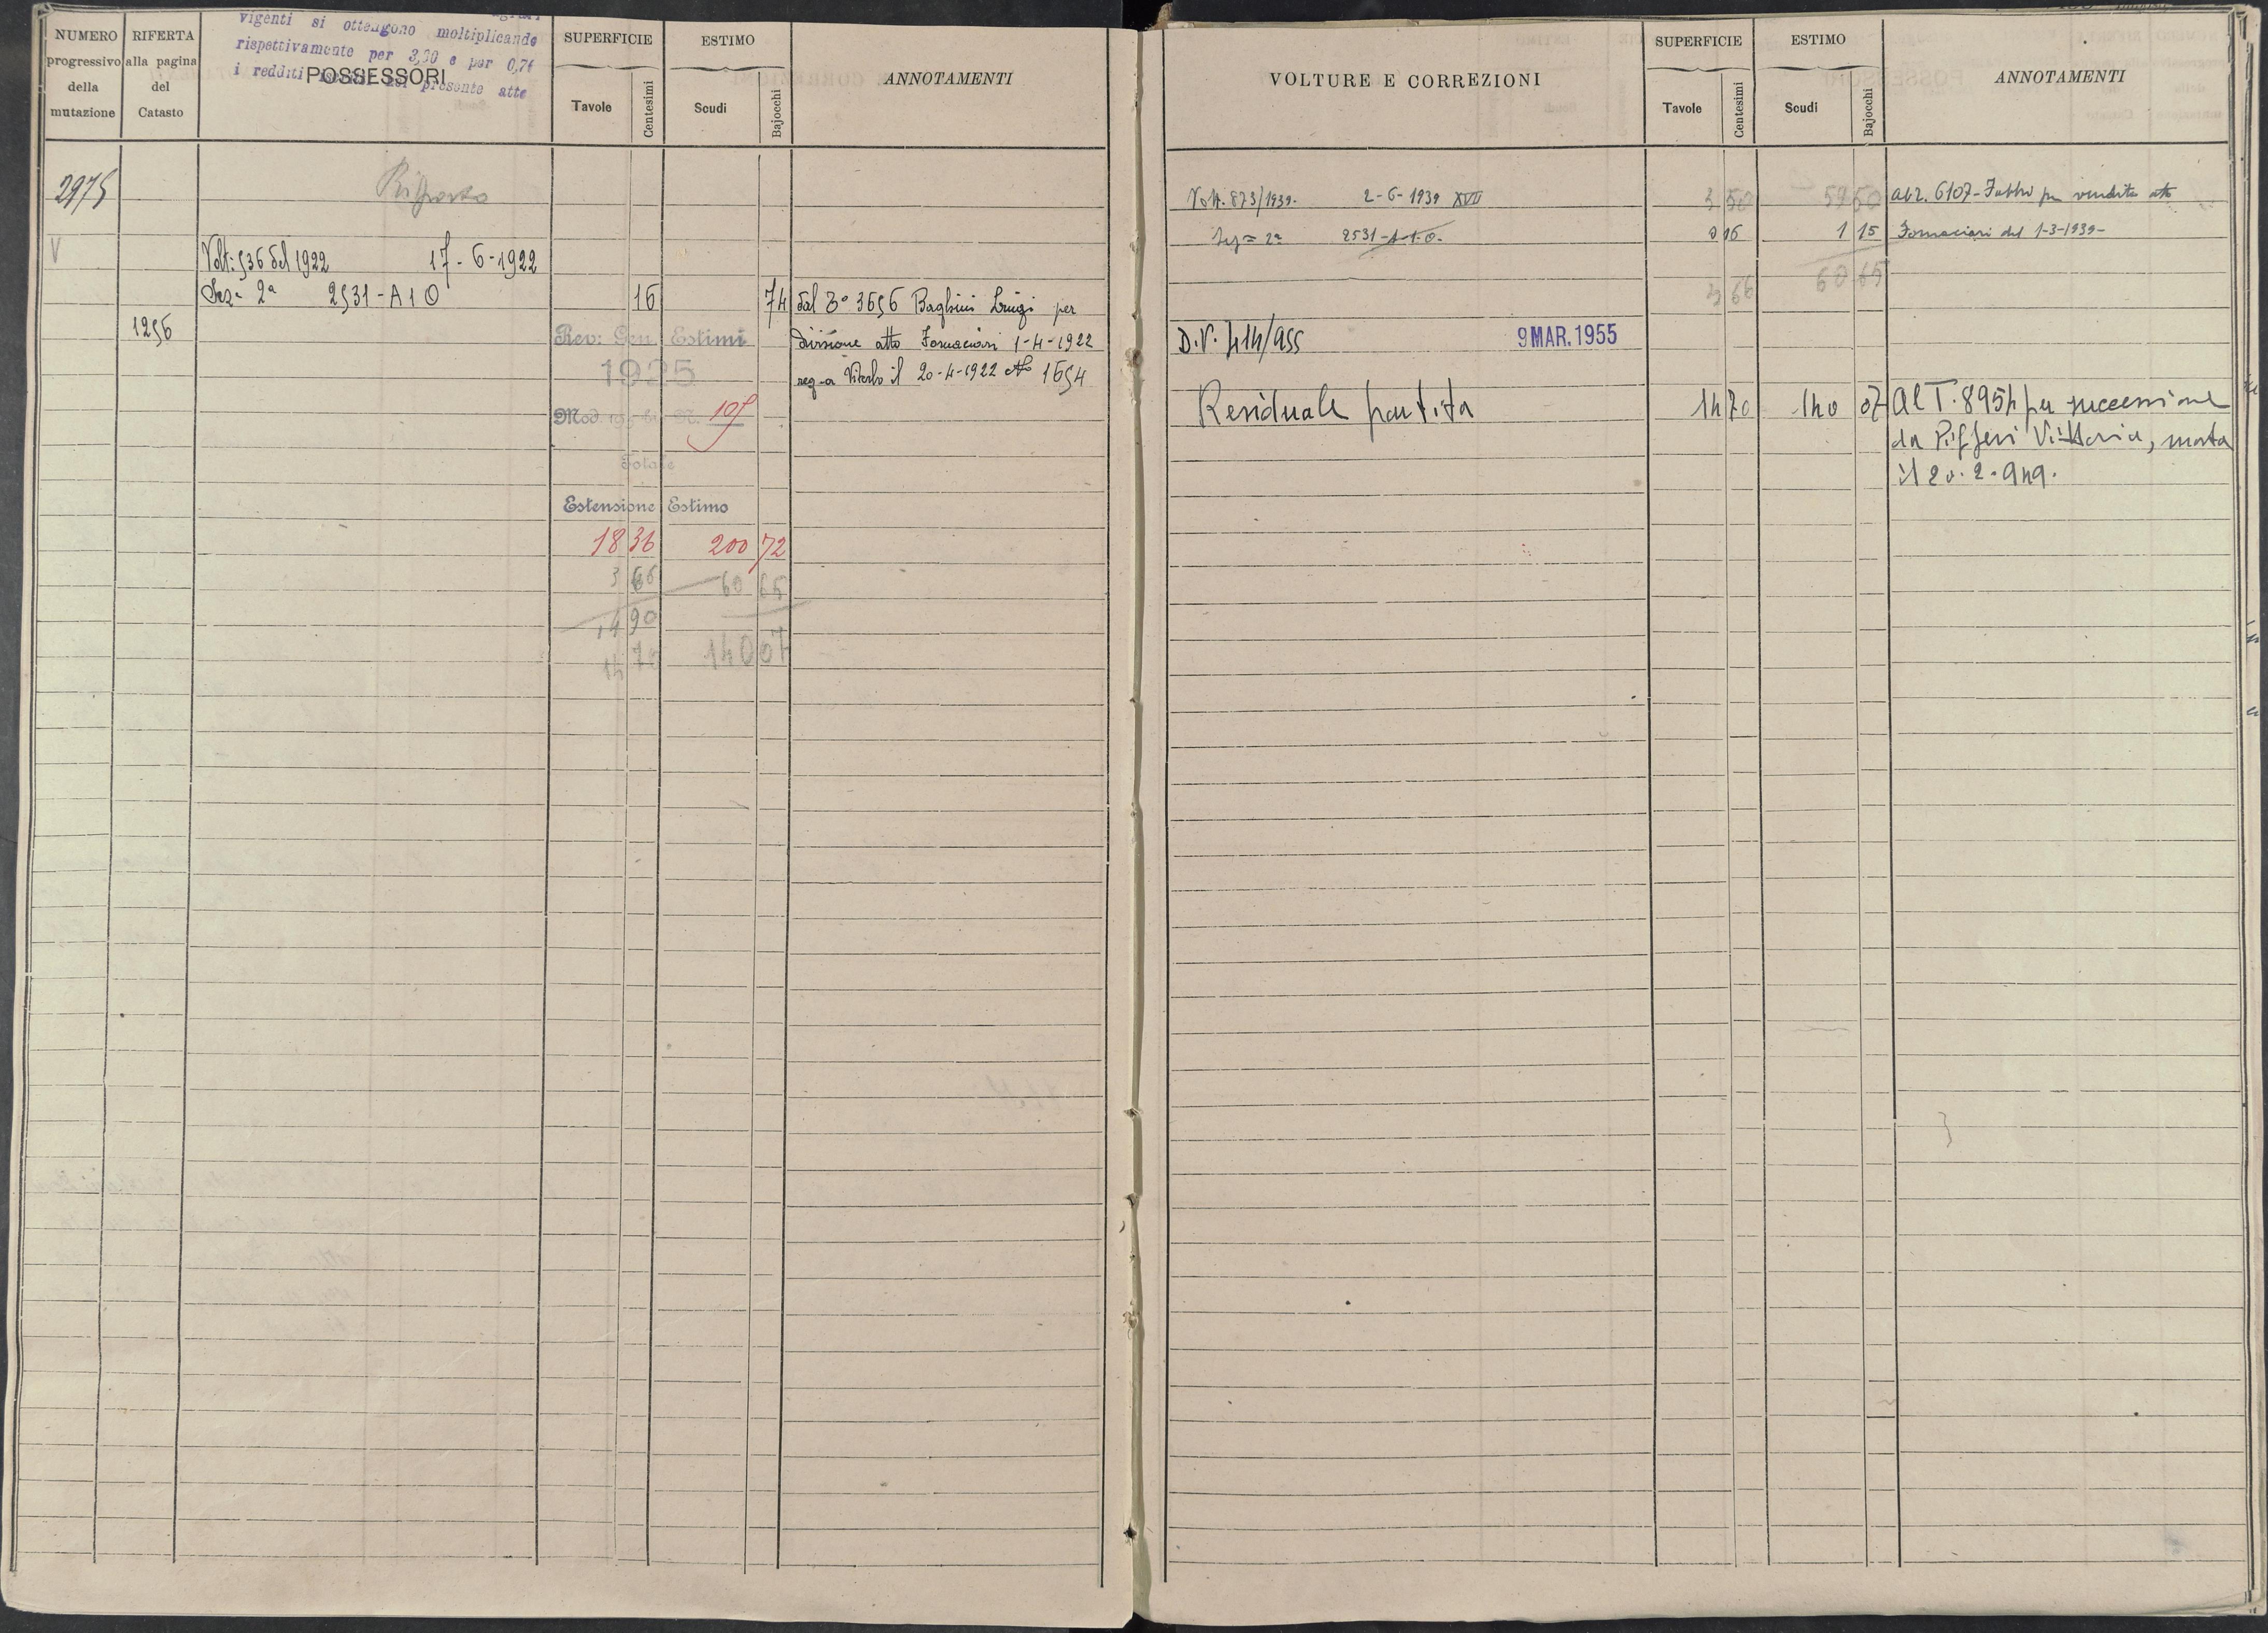 NUMERO progressivo della mutazione
RIFERTA alla pagina del Catasto
vigenti si ottengono moltiplicando
rispettivamente per 3,30 e per 0,7
i redditi presente atte
POSSESSORI
SUPERFICIE
Tavole
Centesimi
ESTIMO
Scudi
Bajocchi
ANNOTAMENTI
2975
Riporto
V
Volt: 536 del 1922 17-6-1922
Sez= 2ª 2531-A10 16 74 dal 3656 Luigi per
1256
divisione atto Fornaciari 1-4-1922
reg-a Viterbo il 20-4-1922 N° 1654
Rev: Gen Estimi
1925
Mod. 195 N. 105
Totale
Estensione Estimo
18 36 200 72
3 66 60 65
14 90
14 70 140 07
VOLTURE E CORREZIONI
SUPERFICIE
Tavole
Centesimi
ESTIMO
Scudi
Bajocchi
ANNOTAMENTI
Volt. 873/1939. 2-6-1939 XVII 3 50 59 50 6107- per vendita atto
Sez= 2ª 2531-A-1-0- 0 16 1 15 Fornaciari del 1-3-1939-
3 66 60 65
D.V. 414/955 9 MAR. 1955
Residuale partita 14 70 140 07 Al T. 8954 per successione
da Pifferi Vittoria, morta
il 20.2.949.